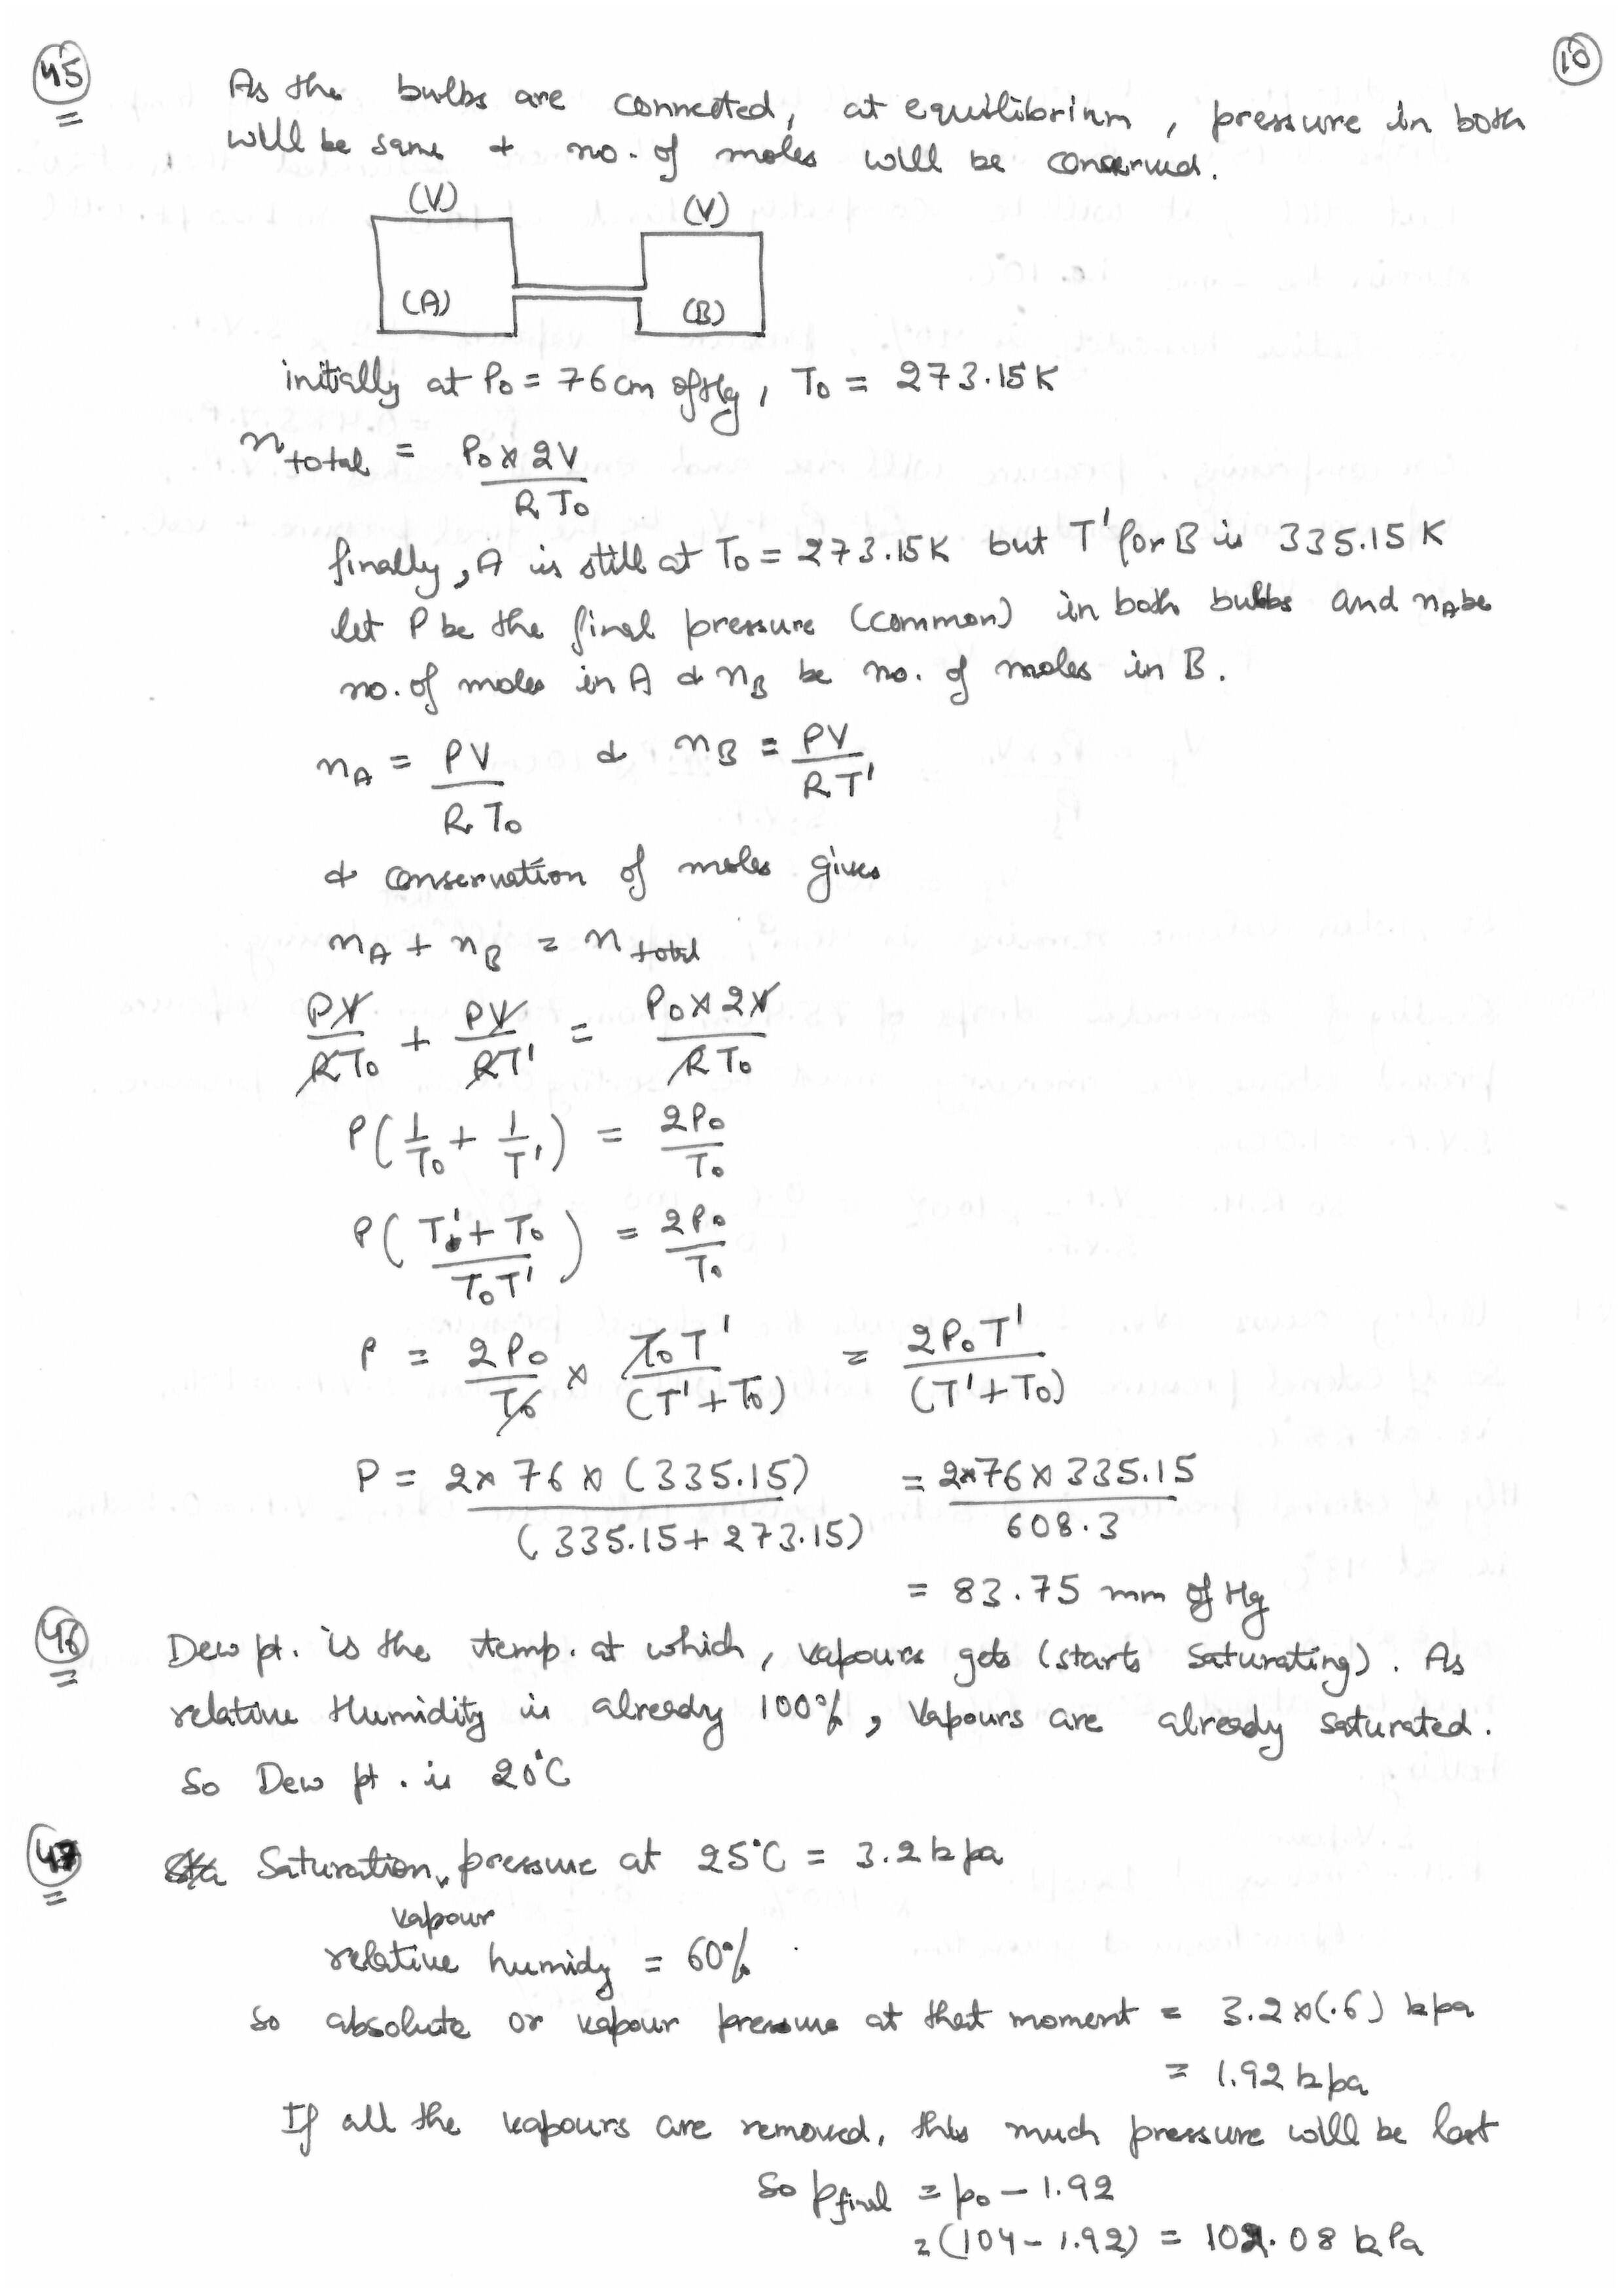 45
10
As the bulbs are connected, at equilibrium, pressure in both
will be same & no. of moles will be conserved.
(V) (V)
(A) (B)
initially at P₀ = 76 cm of Hg, T₀ = 273.15 K
n total = P₀ × 2V / R T₀
finally, A is still at T₀ = 273.15K but T' for B is 335.15 K
let P be the final pressure (common) in both bulbs and nA be
no. of moles in A & nB be no. of moles in B.
nA = PV / R T₀ & nB = PV / R T'
& conservation of moles gives
nA + nB = n total
PV / RT₀ + PV / RT' = P₀ × 2V / R T₀
P(1/T₀ + 1/T') = 2P₀ / T₀
P(T' + T₀ / T₀T') = 2P₀ / T₀
P = 2P₀ / T₀ × T₀T' / (T' + T₀) = 2P₀T' / (T' + T₀)
P = 2 × 76 × (335.15) / (335.15 + 273.15) = 2×76×335.15 / 608.3
= 83.75 mm of Hg
46
Dew pt. is the temp. at which, vapours gets (starts saturating). As
relative Humidity is already 100%, vapours are already saturated.
So Dew pt. is 20°C
47
Saturation vapour pressure at 25°C = 3.2 kpa
relative humidy = 60%
So absolute or vapour pressure at that moment = 3.2 × (.6) kpa
= 1.92 kpa
If all the vapours are removed, this much pressure will be lost
So p final = p₀ – 1.92
= (104 – 1.92) = 102.08 kPa